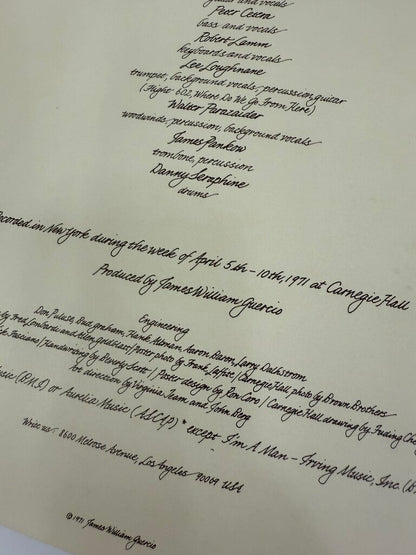 guitar and vocals
Peter Cetera
bass and vocals
Robert Lamm
keyboards and vocals
Lee Loughnane
trumpet, background vocals, percussion, guitar
(Flight 602, Where Do We Go From Here)
Walter Parazaider
woodwinds, percussion, background vocals
James Pankow
trombone, percussion
Danny Seraphine
drums
Recorded in New York during the week of April 5th-10th, 1971 at Carnegie Hall
Produced by James William Guercio
Engineering
Don Puluse, Bud Graham, Hank Altman, Aaron Baron, Larry Dahlstrom
by Fred Lombardi and Allen Goldblatt / Poster photo by Frank Laffitte / Carnegie Hall photo by Brown Brothers
Nick Fasciano / Handwriting by Beverly Scott / Poster design by Ron Coro / Carnegie Hall drawing by Irving
Art direction by Virginia Team and John Berg
Music (BMI) or Aurelia Music (ASCAP) * except I'm A Man - Irving Music, Inc. (B
Write us: 8600 Melrose Avenue, Los Angeles 90069 USA
© 1971 James William Guercio